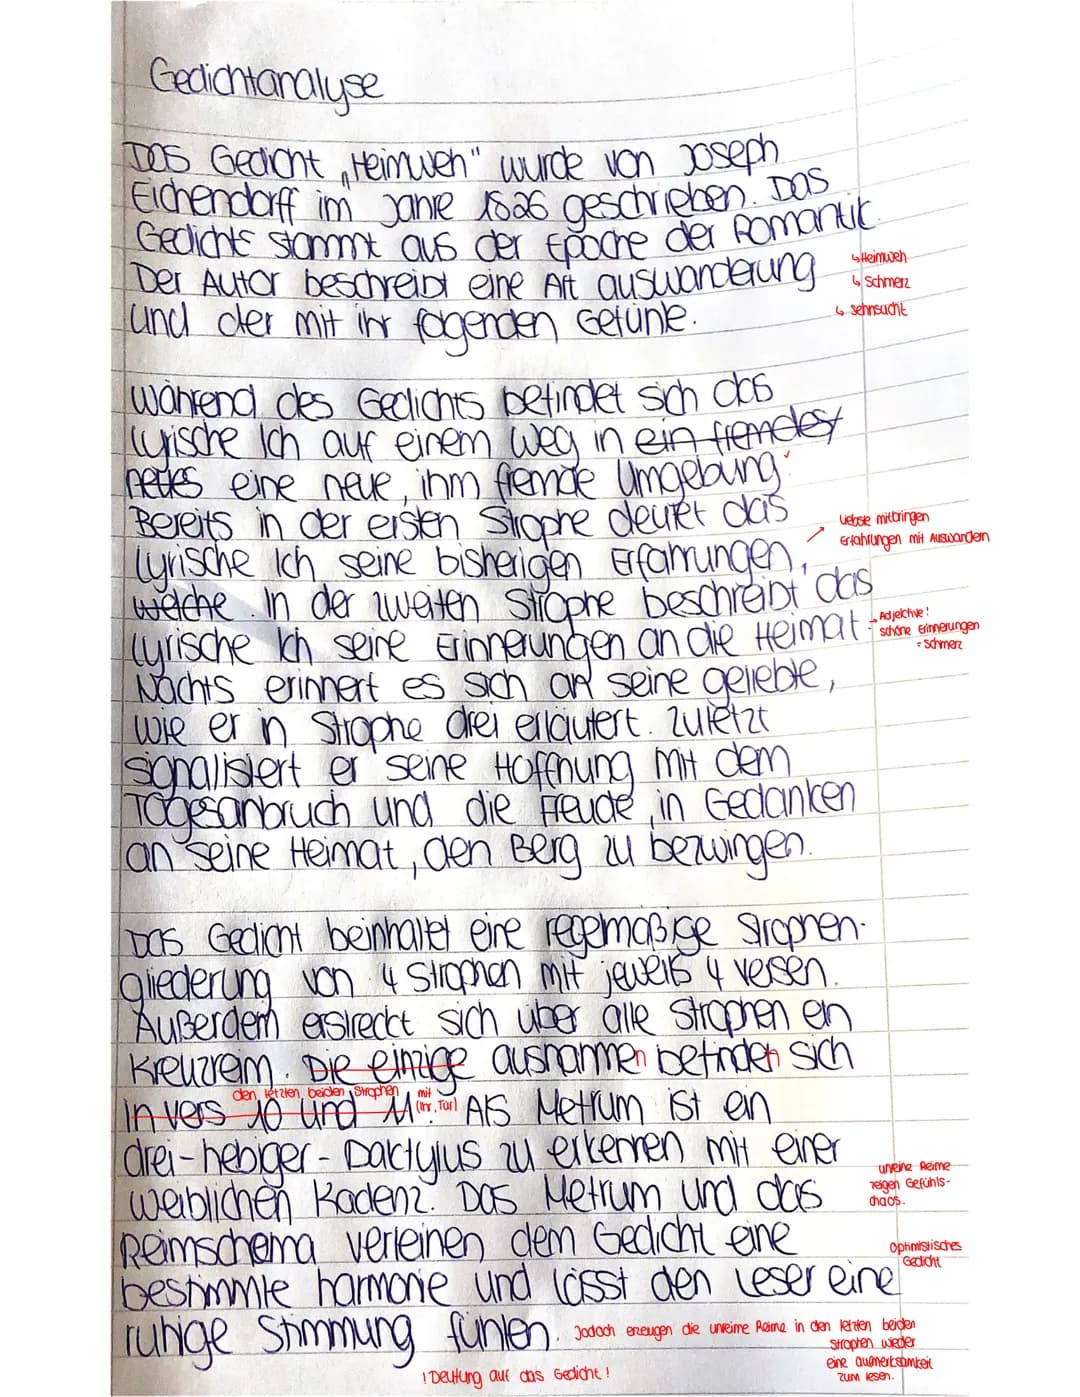 Gedichtanalyse
Das Gedicht „Heimweh" wurde von Joseph
Eichendorff im Jahre 1826 geschrieben. Das
Gedichts stammt aus der Epoche der Romantik.
Der Autor beschreibt eine Art auswanderung
und der mit ihr folgenden Gefühle.
↳ Heimweh
↳ Schmerz
↳ sehnsucht
Während des Gedichts befindet sich das
lyrische Ich auf einem Weg in ein fremdes
neues eine neue, ihm fremde Umgebung.
Bereits in der ersten Strophe deutet das
lyrische Ich seine bisherigen Erfahrungen,
welche. In der zweiten Strophe beschreibt das
lyrische Ich seine Erinnerungen an die Heimat.
Nachts erinnert es sich an seine geliebte,
wie er in Strophe drei erläutert. Zuletzt
signalisiert er seine Hoffnung mit dem
Tagesanbruch und die Freude, in Gedanken
an seine Heimat, den Berg zu bezwingen.
Liebste mitbringen
Erfahrungen mit Auswandern
Adjektive!
schöne Erinnerungen
= Schmerz
Das Gedicht beinhaltet eine regemäßige Strophen-
gliederung von 4 Strophen mit jeweils 4 versen.
Außerdem erstreckt sich über alle Strophen ein
Kreuzreim. Die einzige ausnahmen befinden sich
den letzten beiden Strophen mit
In vers 10 und 11. (Ihr, Tür) Als Metrum ist ein
drei-hebiger-Dactylus zu erkennen mit einer
weiblichen Kadenz. Das Metrum und das
Reimschema verleihen dem Gedicht eine
bestimmte harmonie und lässt den Leser eine
ruhige Stimmung fühlen. Jedoch erzeugen die unreime Reime in den letzten beiden
Strophen wieder
eine augmerksamkeit
zum lesen.
unreine Reime
zeigen Gefühls-
chaos.
Optimistisches
Gedicht
! Deutung auf das Gedicht!